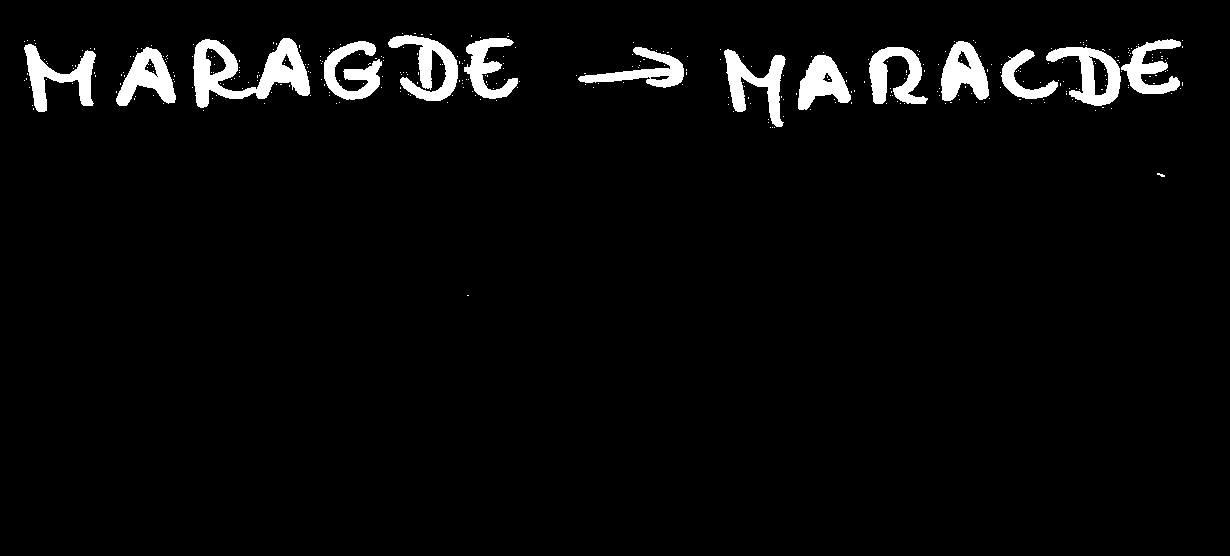 MARAGDE → MARACDE